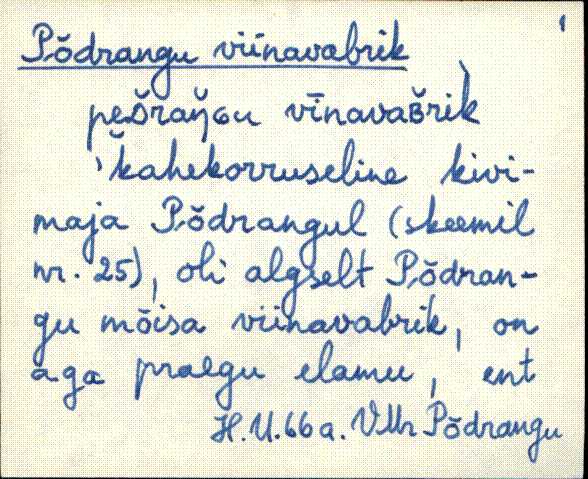 Põdrangu viinavabrik
kahekorruseline kivi-
maja Põdrangul (skeemil
nr. 25), oli algselt Põdran-
gu mõisa viinavabrik, on
aga praegu elamu, ent
H.U. 66 a. VMr Põdrangu